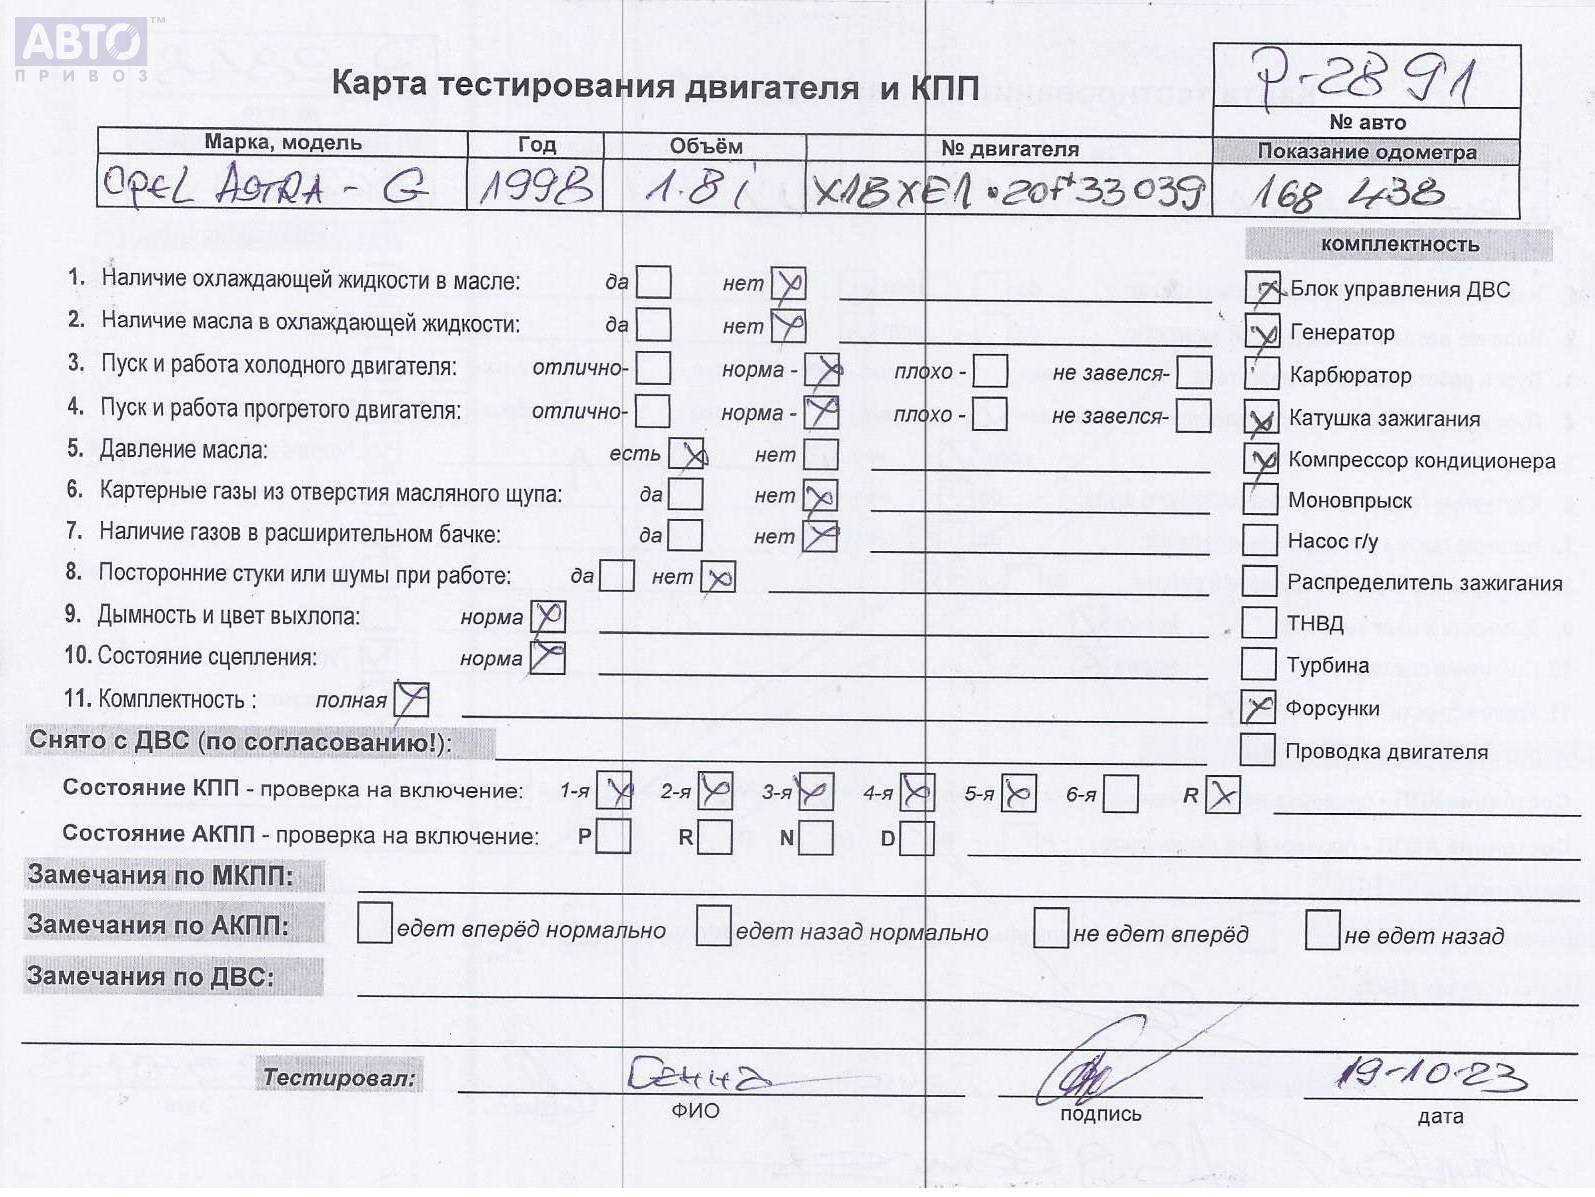 АВТО™
ПРИВОЗ
Карта тестирования двигателя и КПП
P-2891
№ авто
Марка, модель Год Объём № двигателя Показание одометра
OPEL ASTRA - G 1998 1.8 i X18XE1 • 20f*33039 168 438
комплектность
1. Наличие охлаждающей жидкости в масле: да нет
2. Наличие масла в охлаждающей жидкости: да нет
3. Пуск и работа холодного двигателя: отлично- норма - плохо - не завелся-
4. Пуск и работа прогретого двигателя: отлично- норма - плохо - не завелся-
5. Давление масла: есть нет
6. Картерные газы из отверстия масляного щупа: да нет
7. Наличие газов в расширительном бачке: да нет
8. Посторонние стуки или шумы при работе: да нет
9. Дымность и цвет выхлопа: норма
10. Состояние сцепления: норма
11. Комплектность : полная
Блок управления ДВС
Генератор
Карбюратор
Катушка зажигания
Компрессор кондиционера
Моновпрыск
Насос г/у
Распределитель зажигания
ТНВД
Турбина
Форсунки
Проводка двигателя
Снято с ДВС (по согласованию!):
Состояние КПП - проверка на включение: 1-я 2-я 3-я 4-я 5-я 6-я R
Состояние АКПП - проверка на включение: P R N D
Замечания по МКПП:
Замечания по АКПП: едет вперёд нормально едет назад нормально не едет вперёд не едет назад
Замечания по ДВС:
Тестировал: 19-10-23
ФИО подпись дата